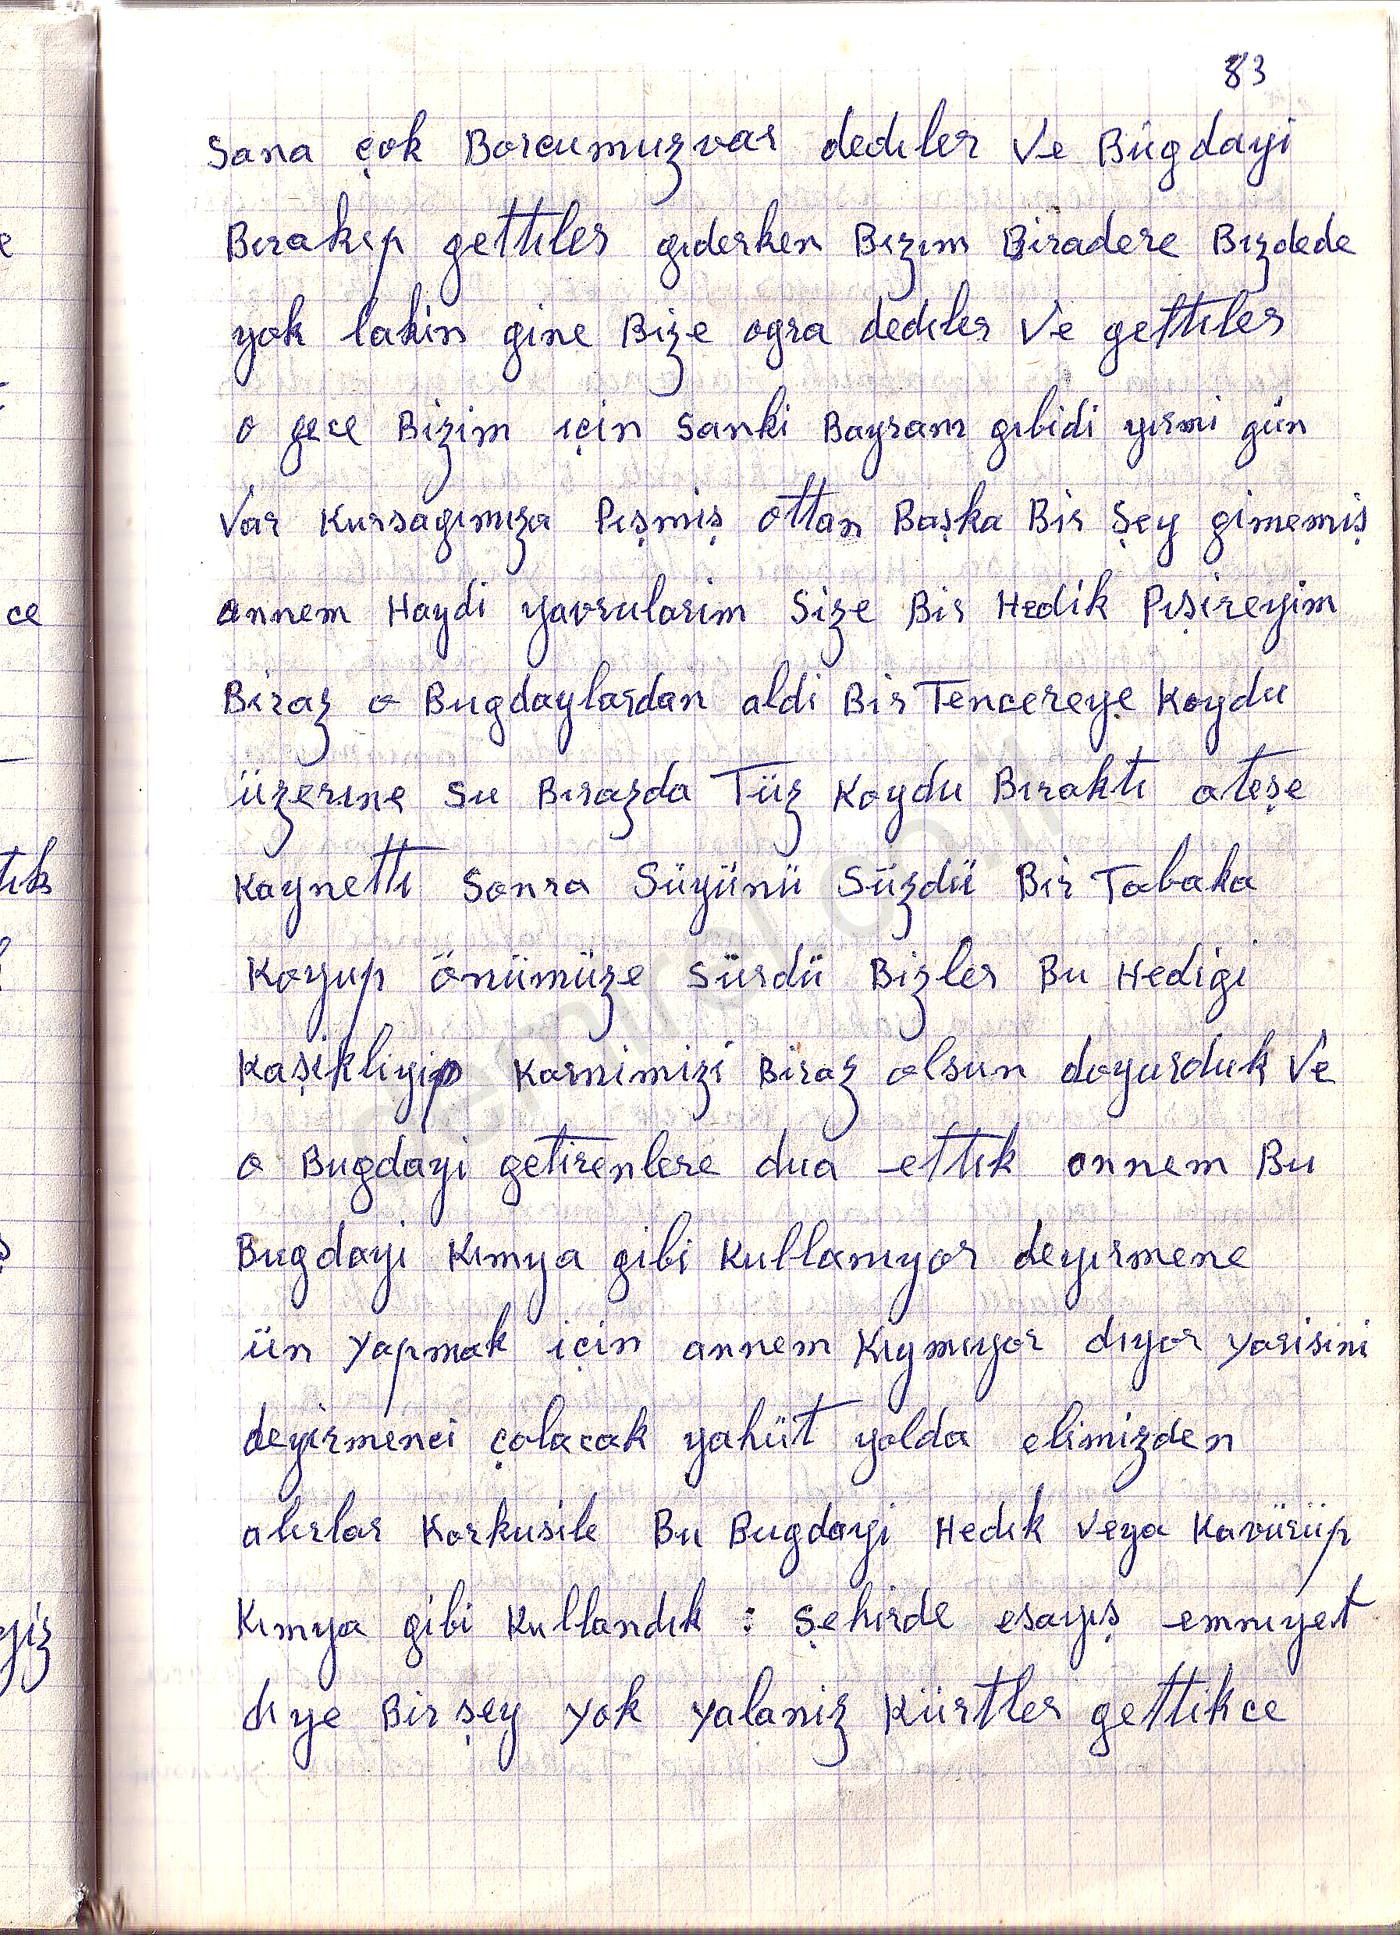 83
Sana çok Borcumuzvar dedıler Ve Bügdayi
Bırakıp gettıler gıderken Bızım Biradere Bızdede
yok lakin gine Bize ogra dedıler Ve gettıler
o gece Bizim ıçin Sanki Bayram gıbidi yırmi gün
Var Kursagımıza Pışmiş ottan Başka Bir Şey gimemiş
annem Haydi yavrularim Size Bir Hedik Pışireyim
Biraz o Bugdaylardan aldi Bir Tencereye Koydu
üzerıne Su Bırazda Tüz Koydu Bıraktı ateşe
Kaynettı Sonra Süyünü Süzdü Bir Tabaka
Koyup önümüze Sürdü Bizler Bu Hedigi
Kaşikliyip Karnimizi Biraz olsun doyurduk Ve
o Bugdayi getirenlere dua ettık annem Bu
Bugdayi Kımya gibi Kullanıyor deyırmene
ün Yapmak için annem Kıymıyor dıyor Yarisini
deyirmenci çalacak yahüt yolda elimizden
alırlar Korkusile Bu Bugdayi Hedık Veya Kavürüp
Kımya gibi Kullandık : Şehirde esayış emnıyet
dıye Bir şey Yok Yalaniz Kürtler gettikce
ce
tık
yiz
demirel.on.il